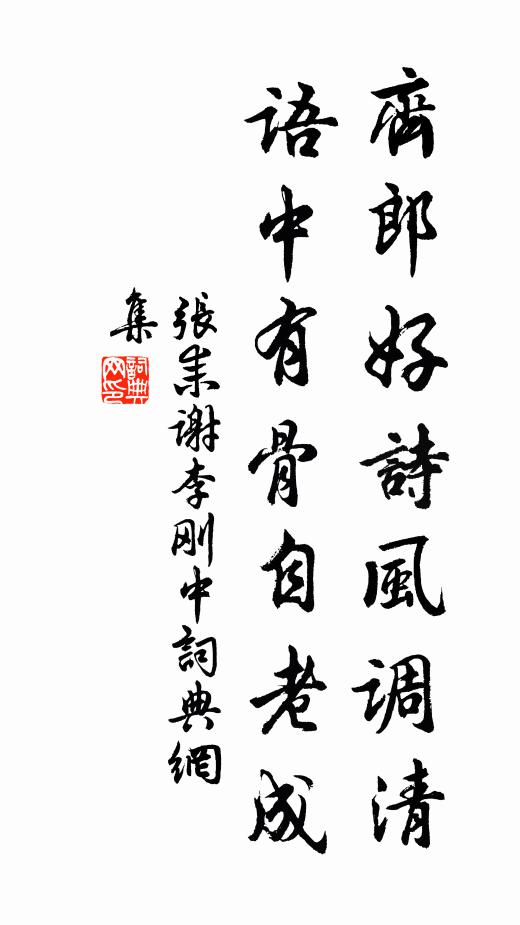 齊郎好詩風調清
語中有骨自老成
張耒謝李剛中詞典網
集
詞典
网印